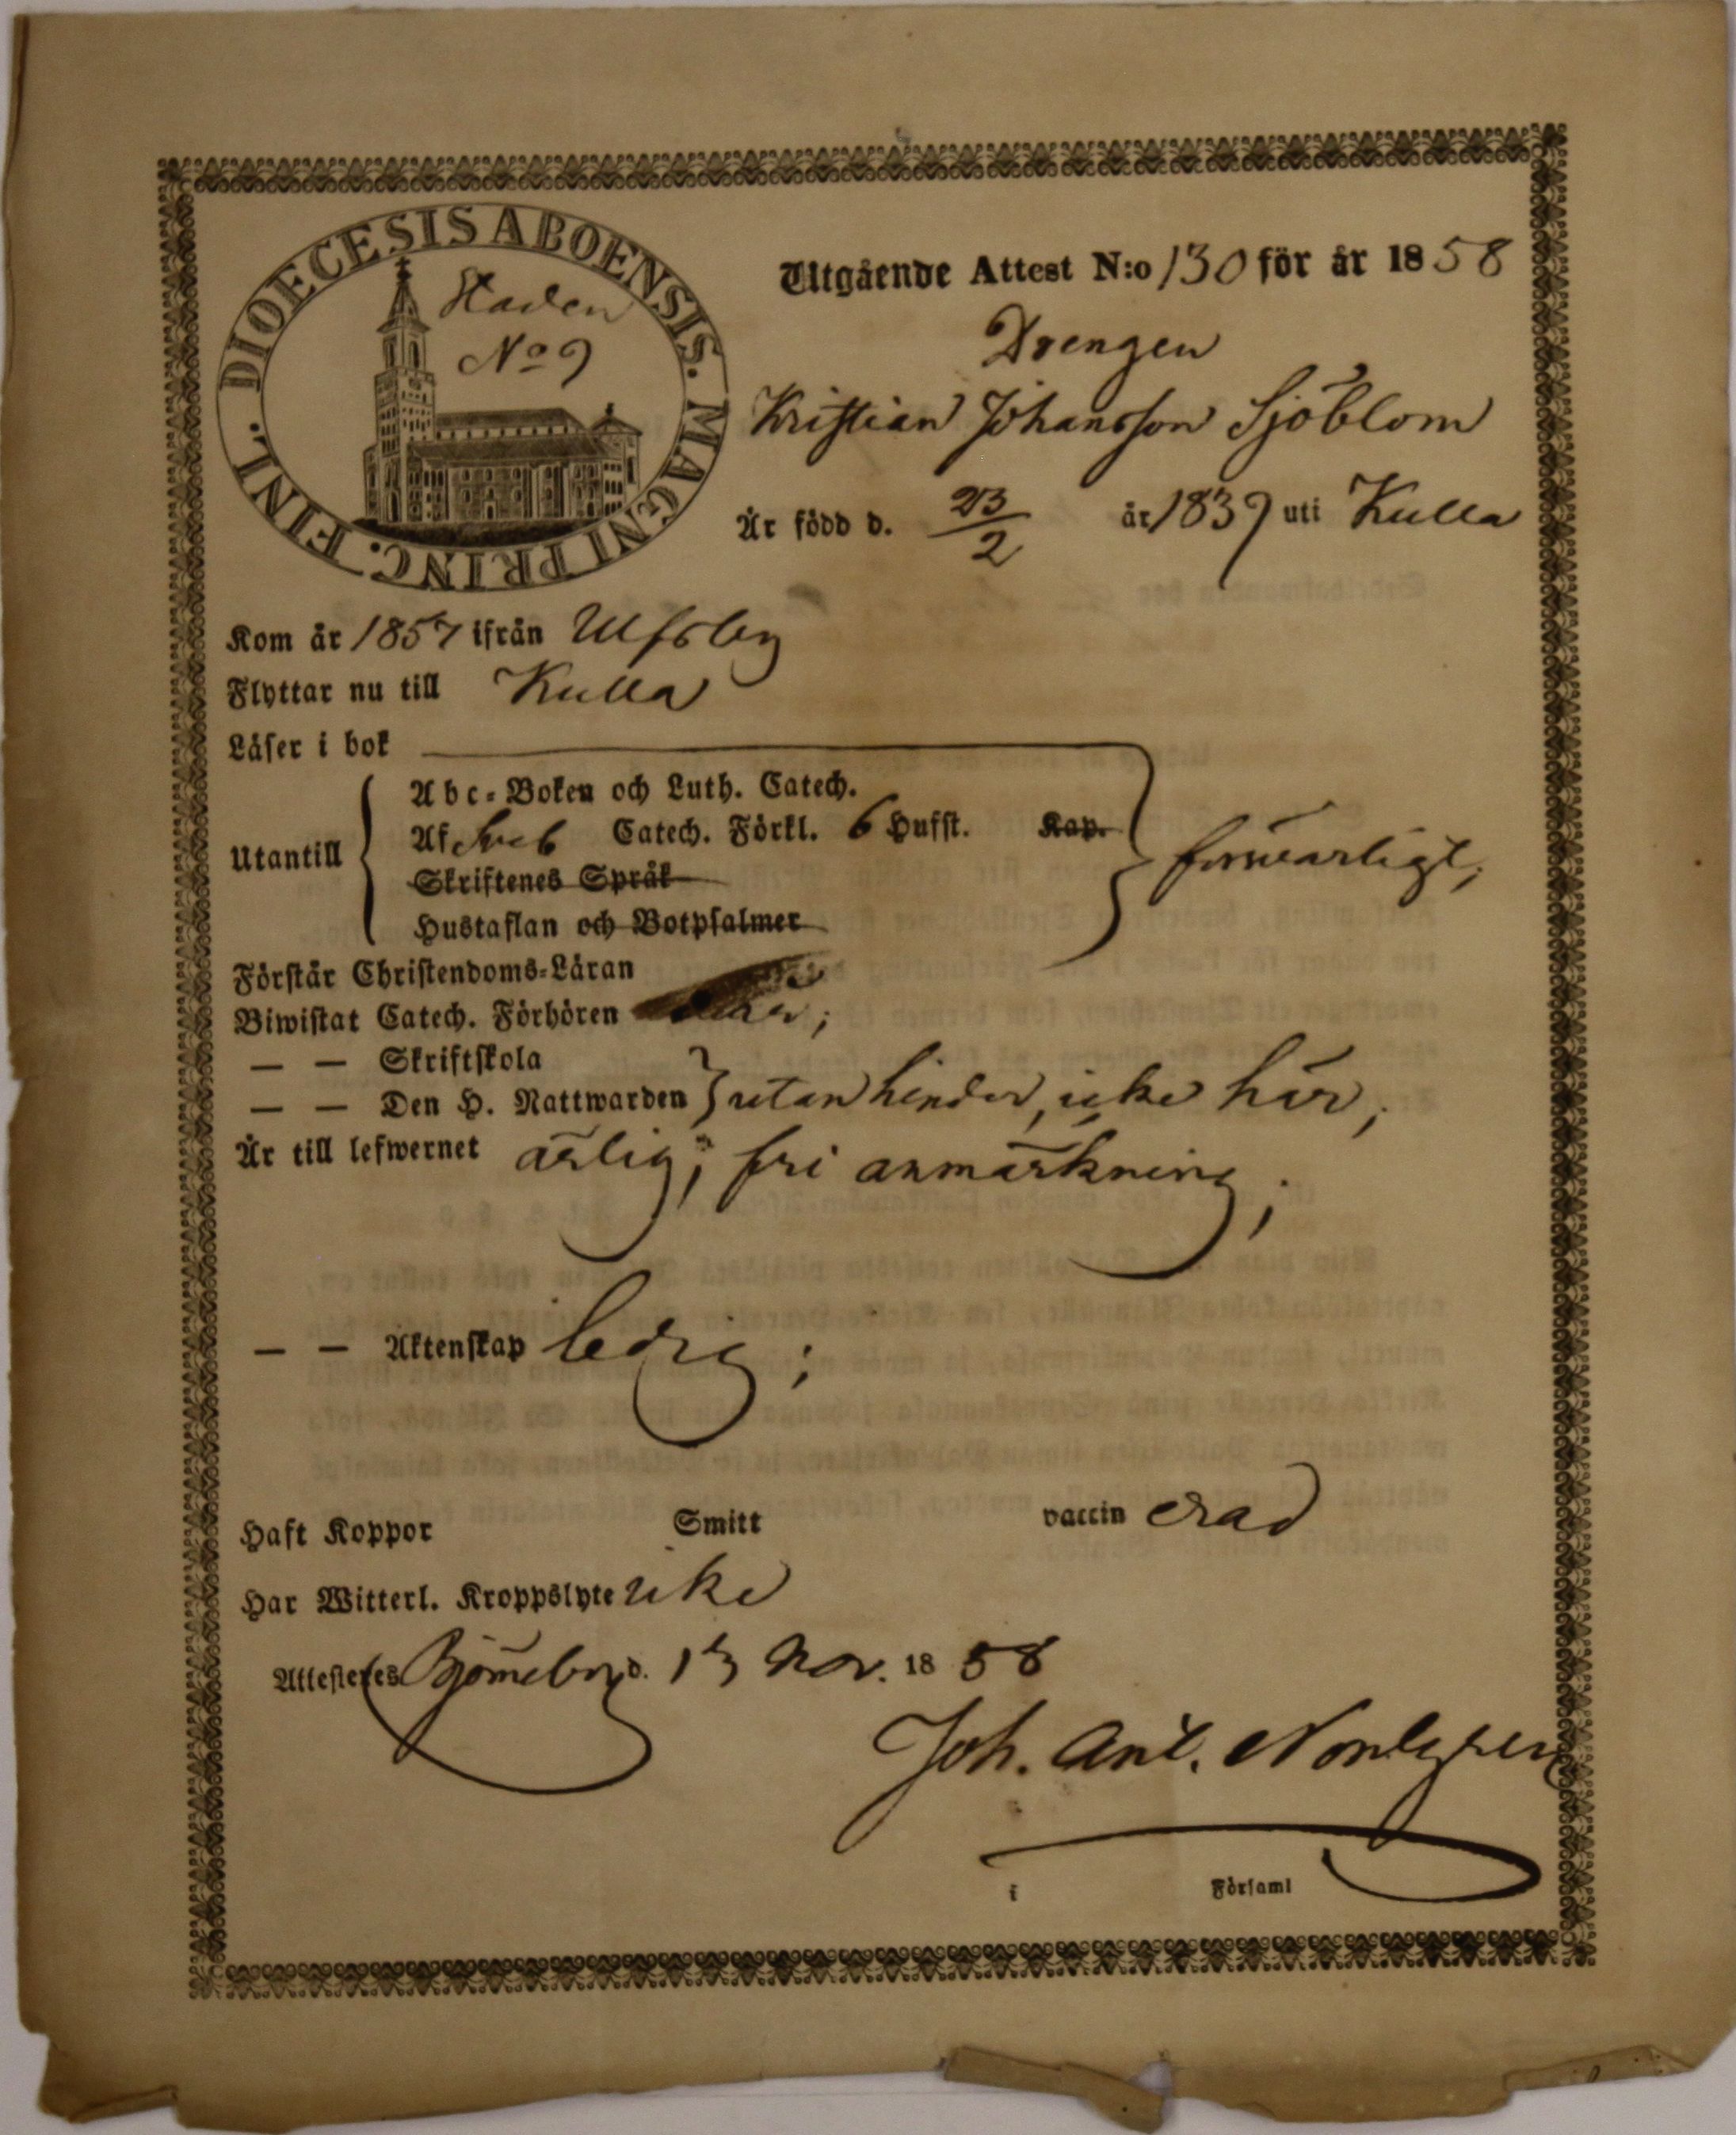 DIOECESIS ABOENSIS. MAGNI PRINC. FINL.
Staden
No 9
Utgående Attest N:o 130 för år 1858
Drengen
Kristian Johansson Sjöblom
Är född d. 23/2 år 1839 uti Kulla
Kom år 1857 ifrån Ulfsby
Flyttar nu till Kulla
Läser i bok
Utantill
Abc-Boken och Luth. Catech.
Af Sveb Catech. Förkl. 6 Hufst. Kap.
Skriftenes Språk
Hustaflan och Botpsalmer
försvarligt;
Förstår Christendoms-Läran
Biwistat Catech. Förhören
— — Skriftskola
— — Den H. Nattwarden } utan hinder, icke här;
Är till lefwernet ärlig; fri anmärkning;
— — Äktenskap ledig;
Haft Koppor Smitt vaccin erad
Har Witterl. Kroppslyte icke
Attesteres Björneborg d. 13 Nov. 1858
Joh. Ant. Nordgren
i Församl